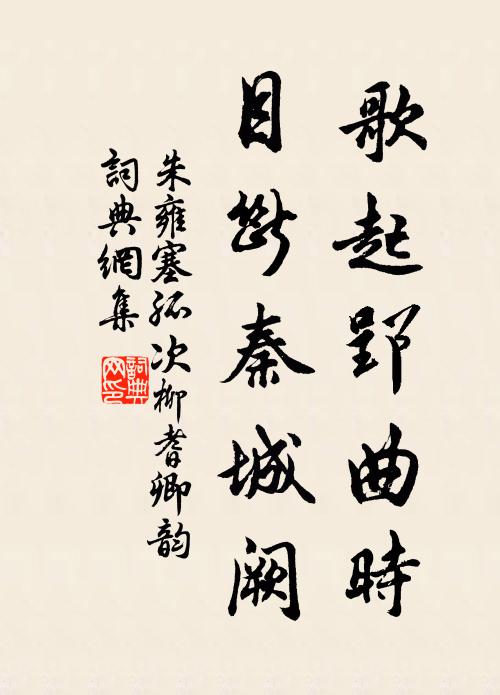 歌起郢曲時
目斷秦城闕
朱雍塞孤次柳耆卿韵
詞典網集
詞典網印